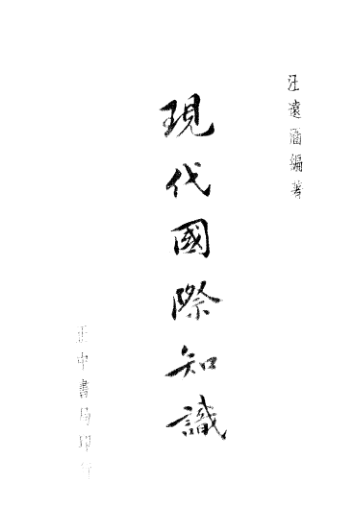 汪遠涵編著
現代國際知識
正中書局印行